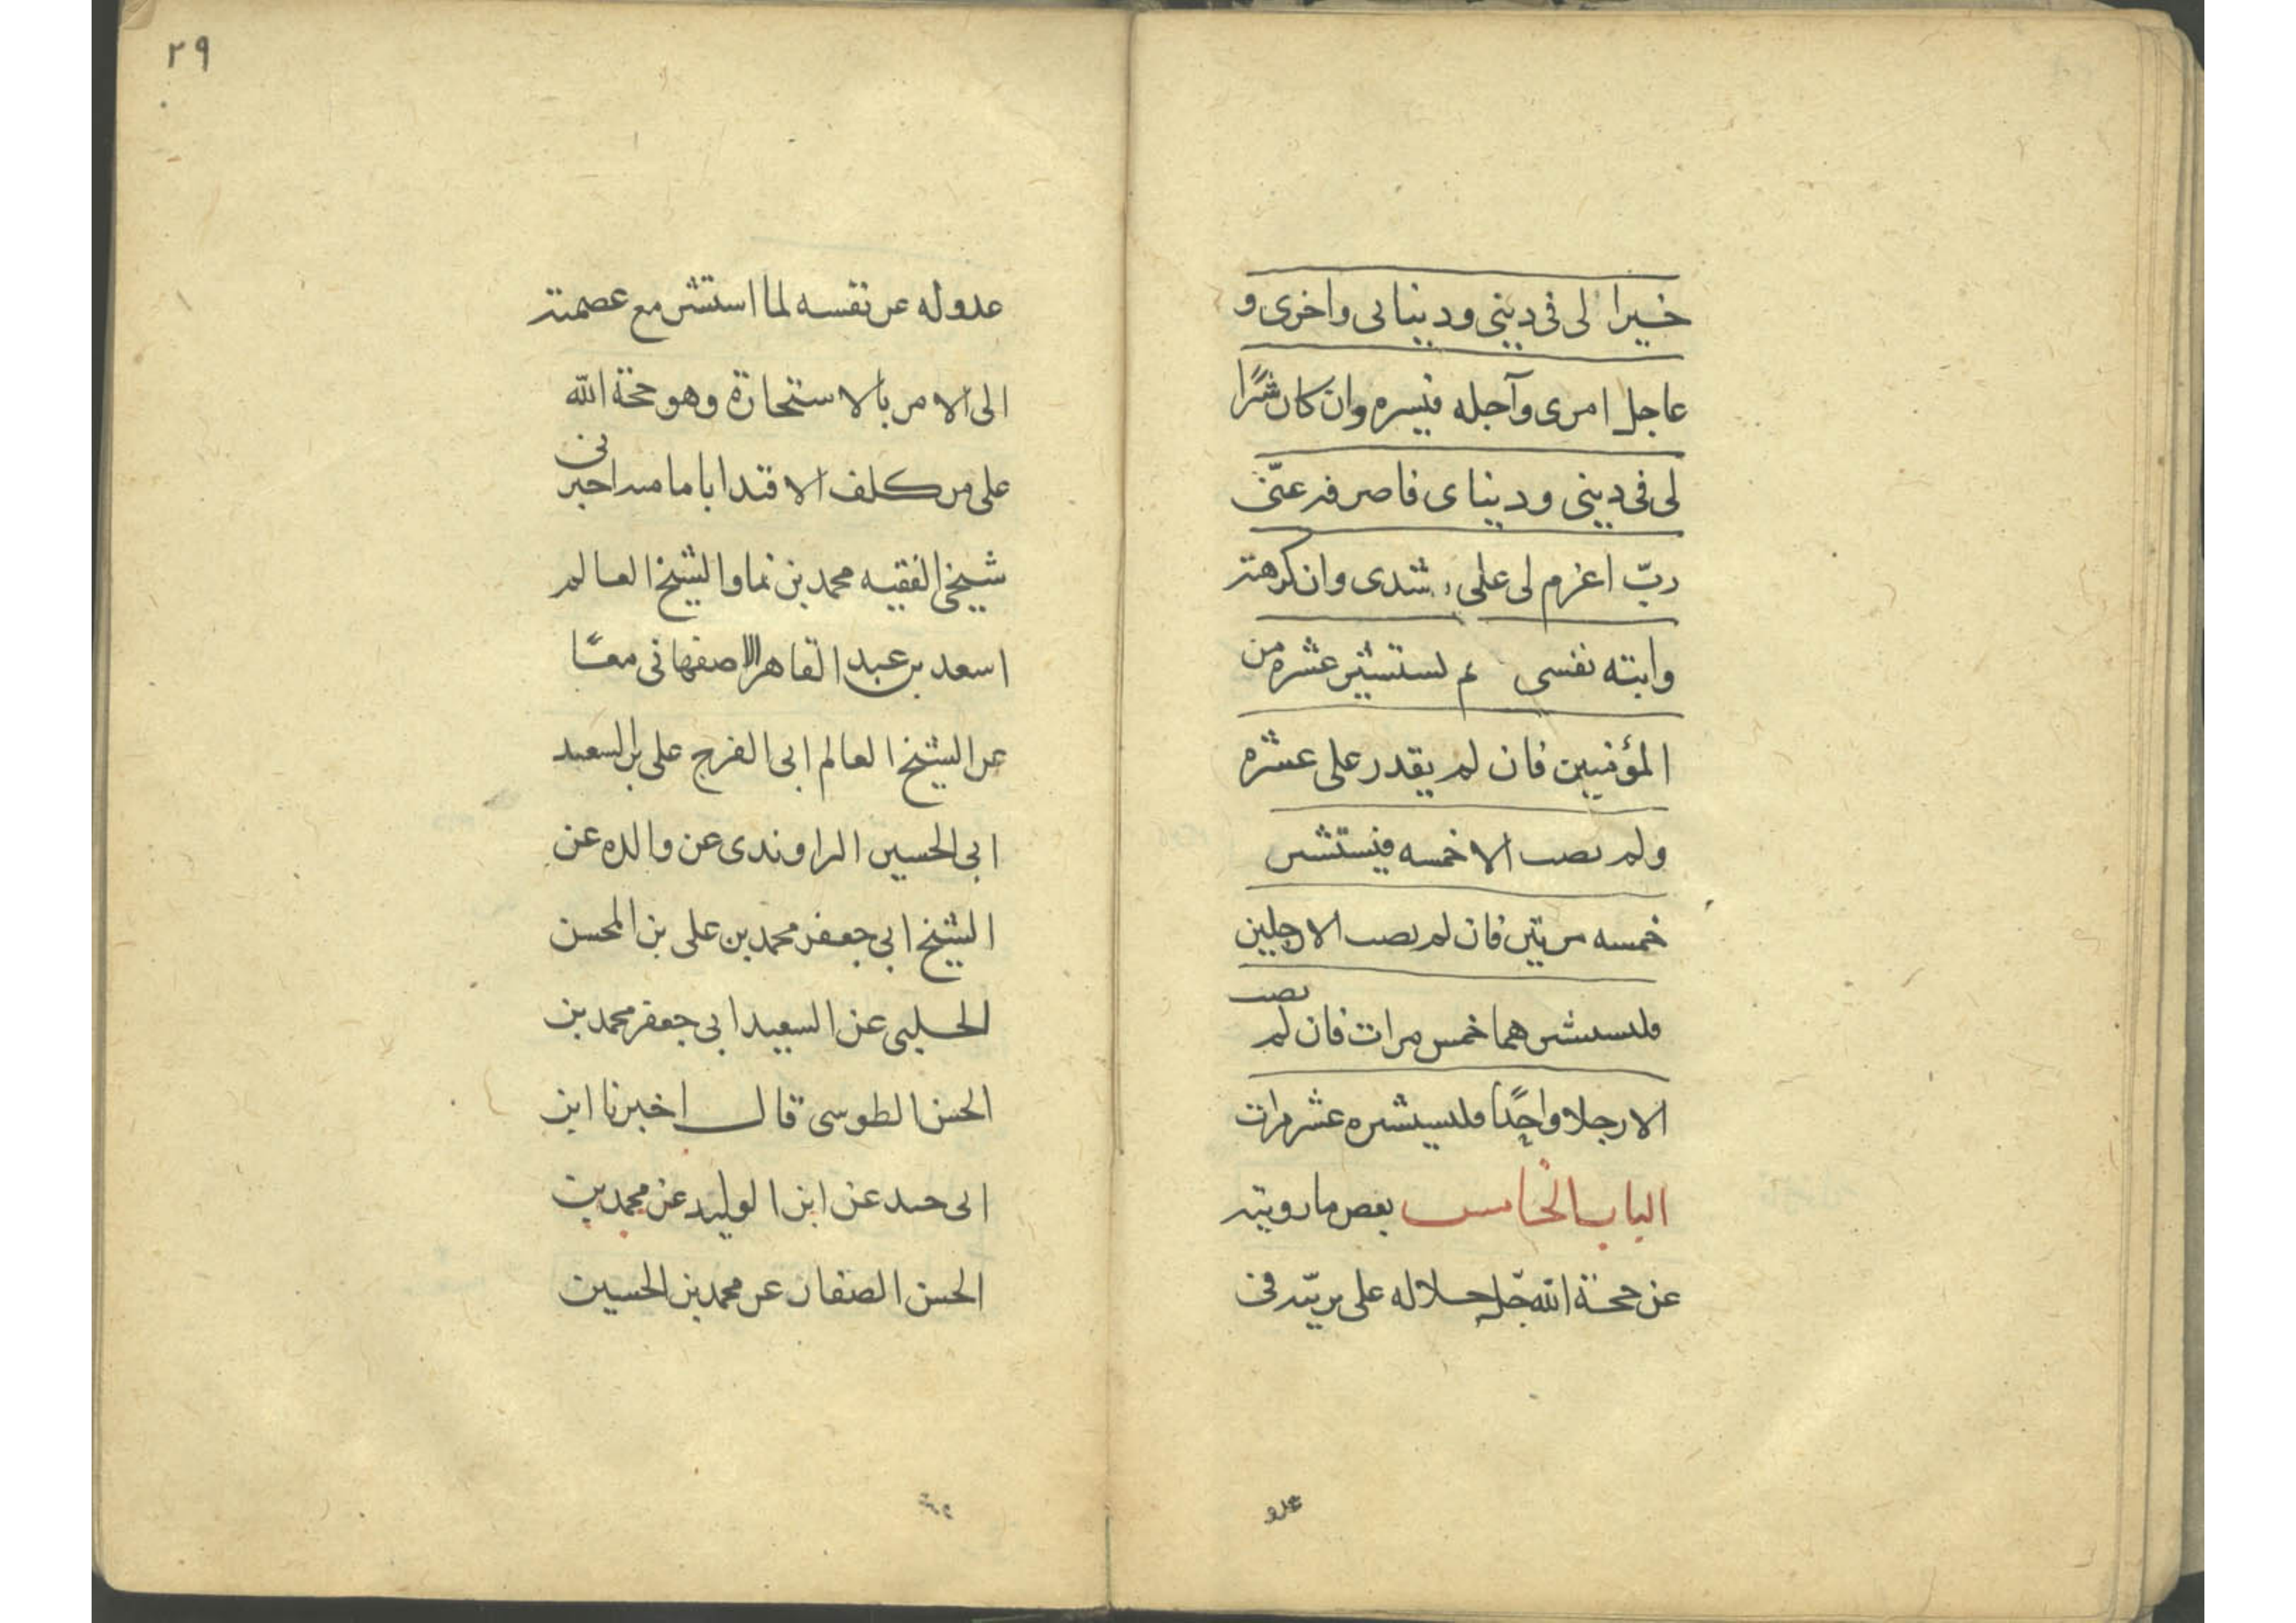 خيرا لى فى دينى ودينانى واخرى و
عاجل امرى وآجله فيسره وان كان شرًا
لى فى دينى ودیناى فاصرفه عنّى
ربّ اعزم لى على رشدى وان كرهته
وابته نفسى ثم لستشير عشره من
المؤمنين فان لم يقدر على عشره
ولم نصب الا خمسه فيستشر
خمسه مرتين فان لم نصب الا رجلين
فلسستشرهما خمس مرات فان لم نصب
الا رجلا واحدًا فلسستشره عشر مرات
الباب الخامس بعض ما رويته
عن حجة الله جلّ جلاله على بريّته فى
عدو
٢٩
عدوله عن نفسه لما استشر مع عصمته
الى الامر بالاستخارة وهو حجة الله
على من كلف الاقتدا بامامته اخبرنى
شيخى الفقيه محمد بن نما والشيخ العالم
اسعد بن عبد القاهر الاصفهانى معًا
عن الشيخ العالم ابى الفرج على بن السعيد
ابى الحسين الراوندى عن والده عن
الشيخ ابى جعفر محمد بن على بن المحسن
الحلبى عن السعيد ابى جعفر محمد بن
الحسن الطوسى قال اخبرنا ابن
ابى جيد عن ابن الوليد عن محمد بن
الحسن الصفار عن محمد بن الحسين